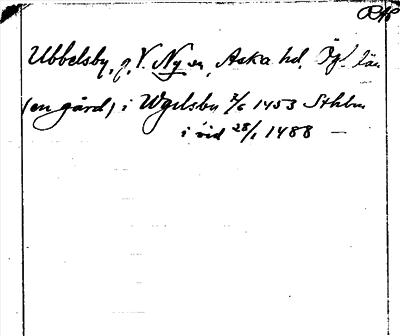 Ubbelsby, g, V. Ny sn, Aska hd, Ögl. län
(en gård) i Wgelsbu 7/6 1453 Sthbr
i vid 28/1 1488 —